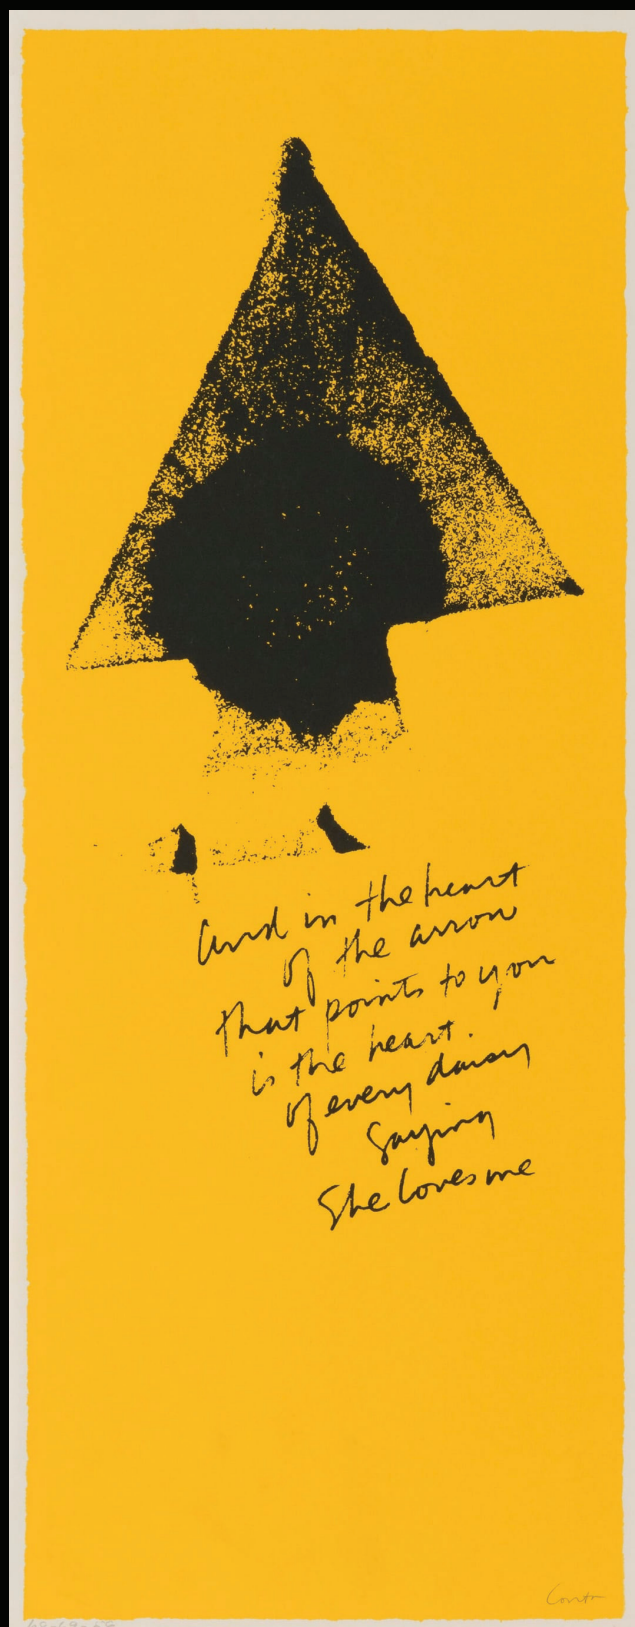 and in the heart
of the arrow
that points to you
is the heart.
of every daisy
Saying
She loves me